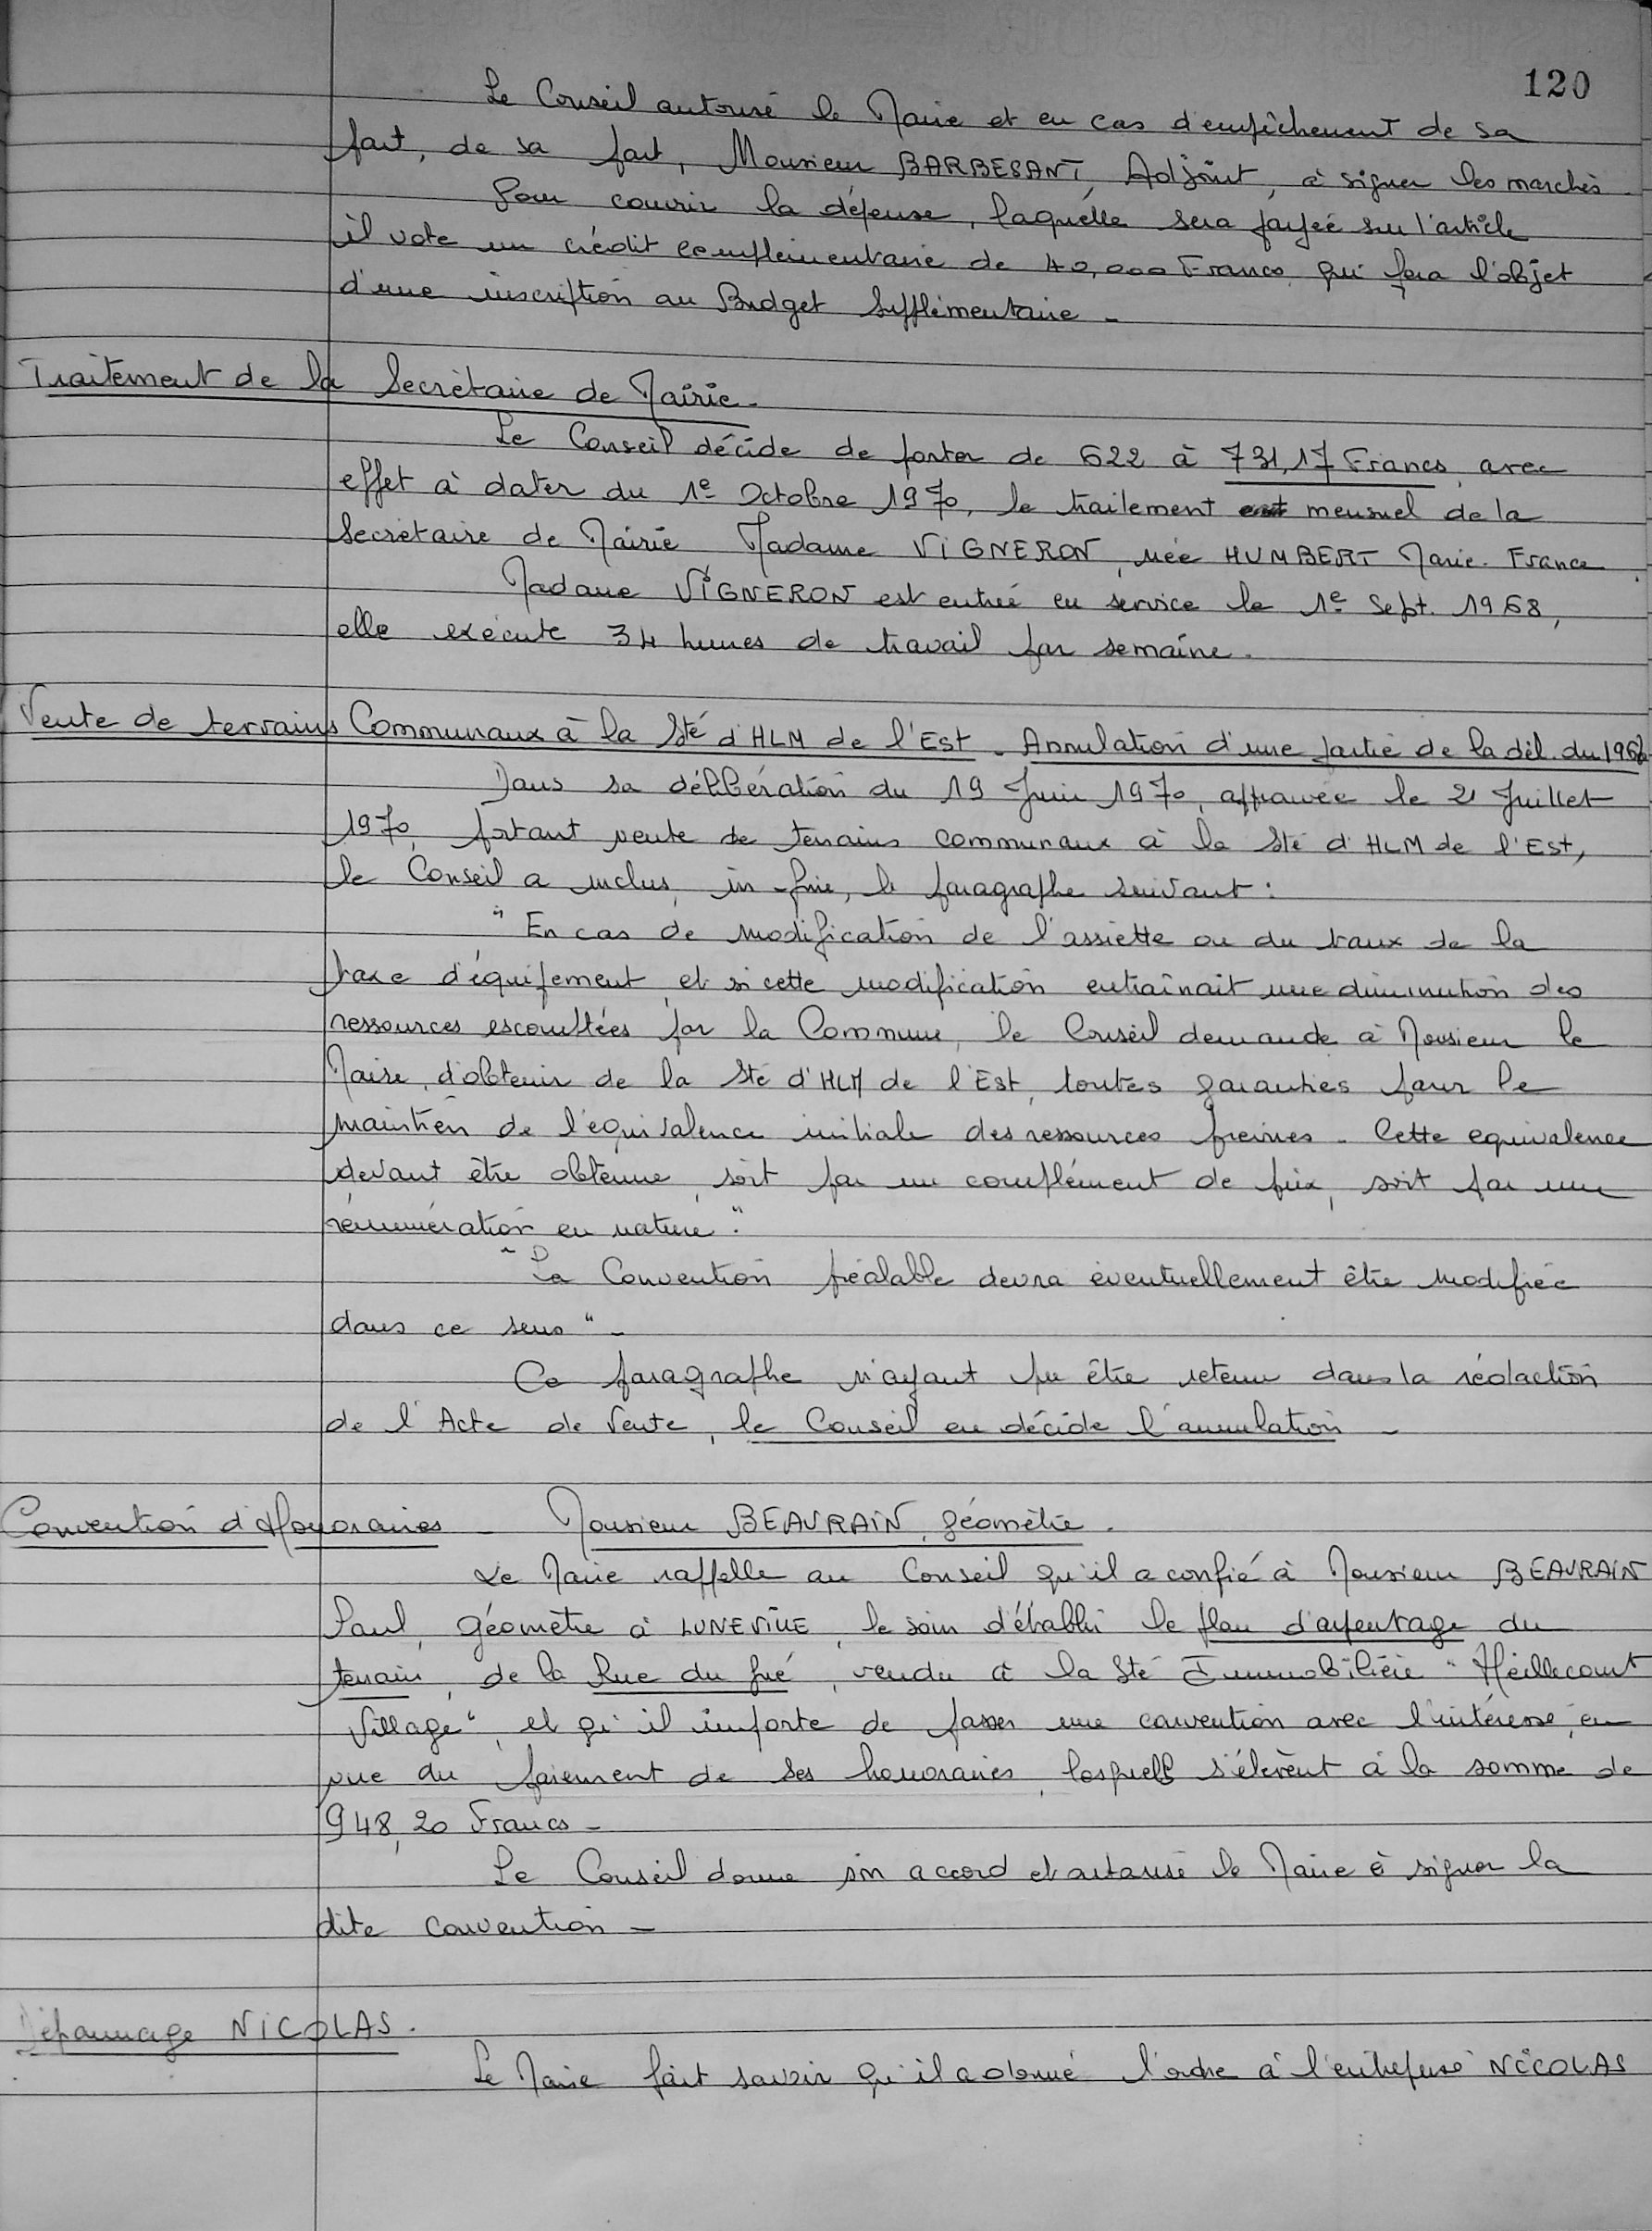 120
Le Conseil autorise le Maire et en cas d'empêchement de sa
part, de sa part, Monsieur BARBESANT, Adjoint, à signer les marchés.
Pour couvrir la dépense, laquelle sera payée sur l'article
il vote un crédit complémentaire de 40,000 Francs qui fera l'objet
d'une inscription au Budget Supplémentaire -
Traitement de la Secrétaire de Mairie -
Le Conseil décide de porter de 622 à 731,17 Francs, avec
effet à dater du 1e Octobre 1970, le traitement mensuel de la
Secrétaire de Mairie Madame VIGNERON, née HUMBERT Marie-France.
Madame VIGNERON est entrée en service le 1e Sept. 1968,
elle exécute 34 heures de travail par semaine.
Vente de terrains Communaux à la Sté d'HLM de l'Est - Annulation d'une partie de la dél. du
Dans sa délibération du 19 Juin 1970, approuvée le 21 Juillet
1970, portant vente de terrains communaux à la Sté d'HLM de l'Est,
le Conseil a inclus, in-fine, le paragraphe suivant :
" En cas de modification de l'assiette ou du taux de la
taxe d'équipement, et si cette modification entraînait une diminution des
ressources escomptées par la Commune, le Conseil demande à Monsieur le
Maire, d'obtenir de la Sté d'HLM de l'Est, toutes garanties pour le
maintien de l'équivalence initiale des ressources prévues - Cette equivalence
devant être obtenue, soit par un complément de prix, soit par une
rémunération en nature".
" La Convention préalable devra éventuellement être modifiée
dans ce sens " -
Ce paragraphe n'ayant pu être retenu dans la rédaction
de l'Acte de Vente, le Conseil en décide l'annulation -
Convention d'Honoraires - Monsieur BEAURAIN, géomètre.
Le Maire rappelle au Conseil qu'il a confié à Monsieur BEAURAIN
Paul, géomètre à LUNEVILLE, le soin d'établir le plan d'arpentage du
terrain, de la Rue du pré, vendu à la Sté Immobilière " Heillecourt
Village", et qu'il importe de passer une convention avec l'intéressé, en
vue du paiement de ses honoraires, lesquels s'élèvent à la somme de
948,20 Francs -
Le Conseil donne son accord et autorise le Maire à signer la
dite convention -
Dépannage NICOLAS.
Le Maire fait savoir qu'il a donné l'ordre à l'entreprise NICOLAS